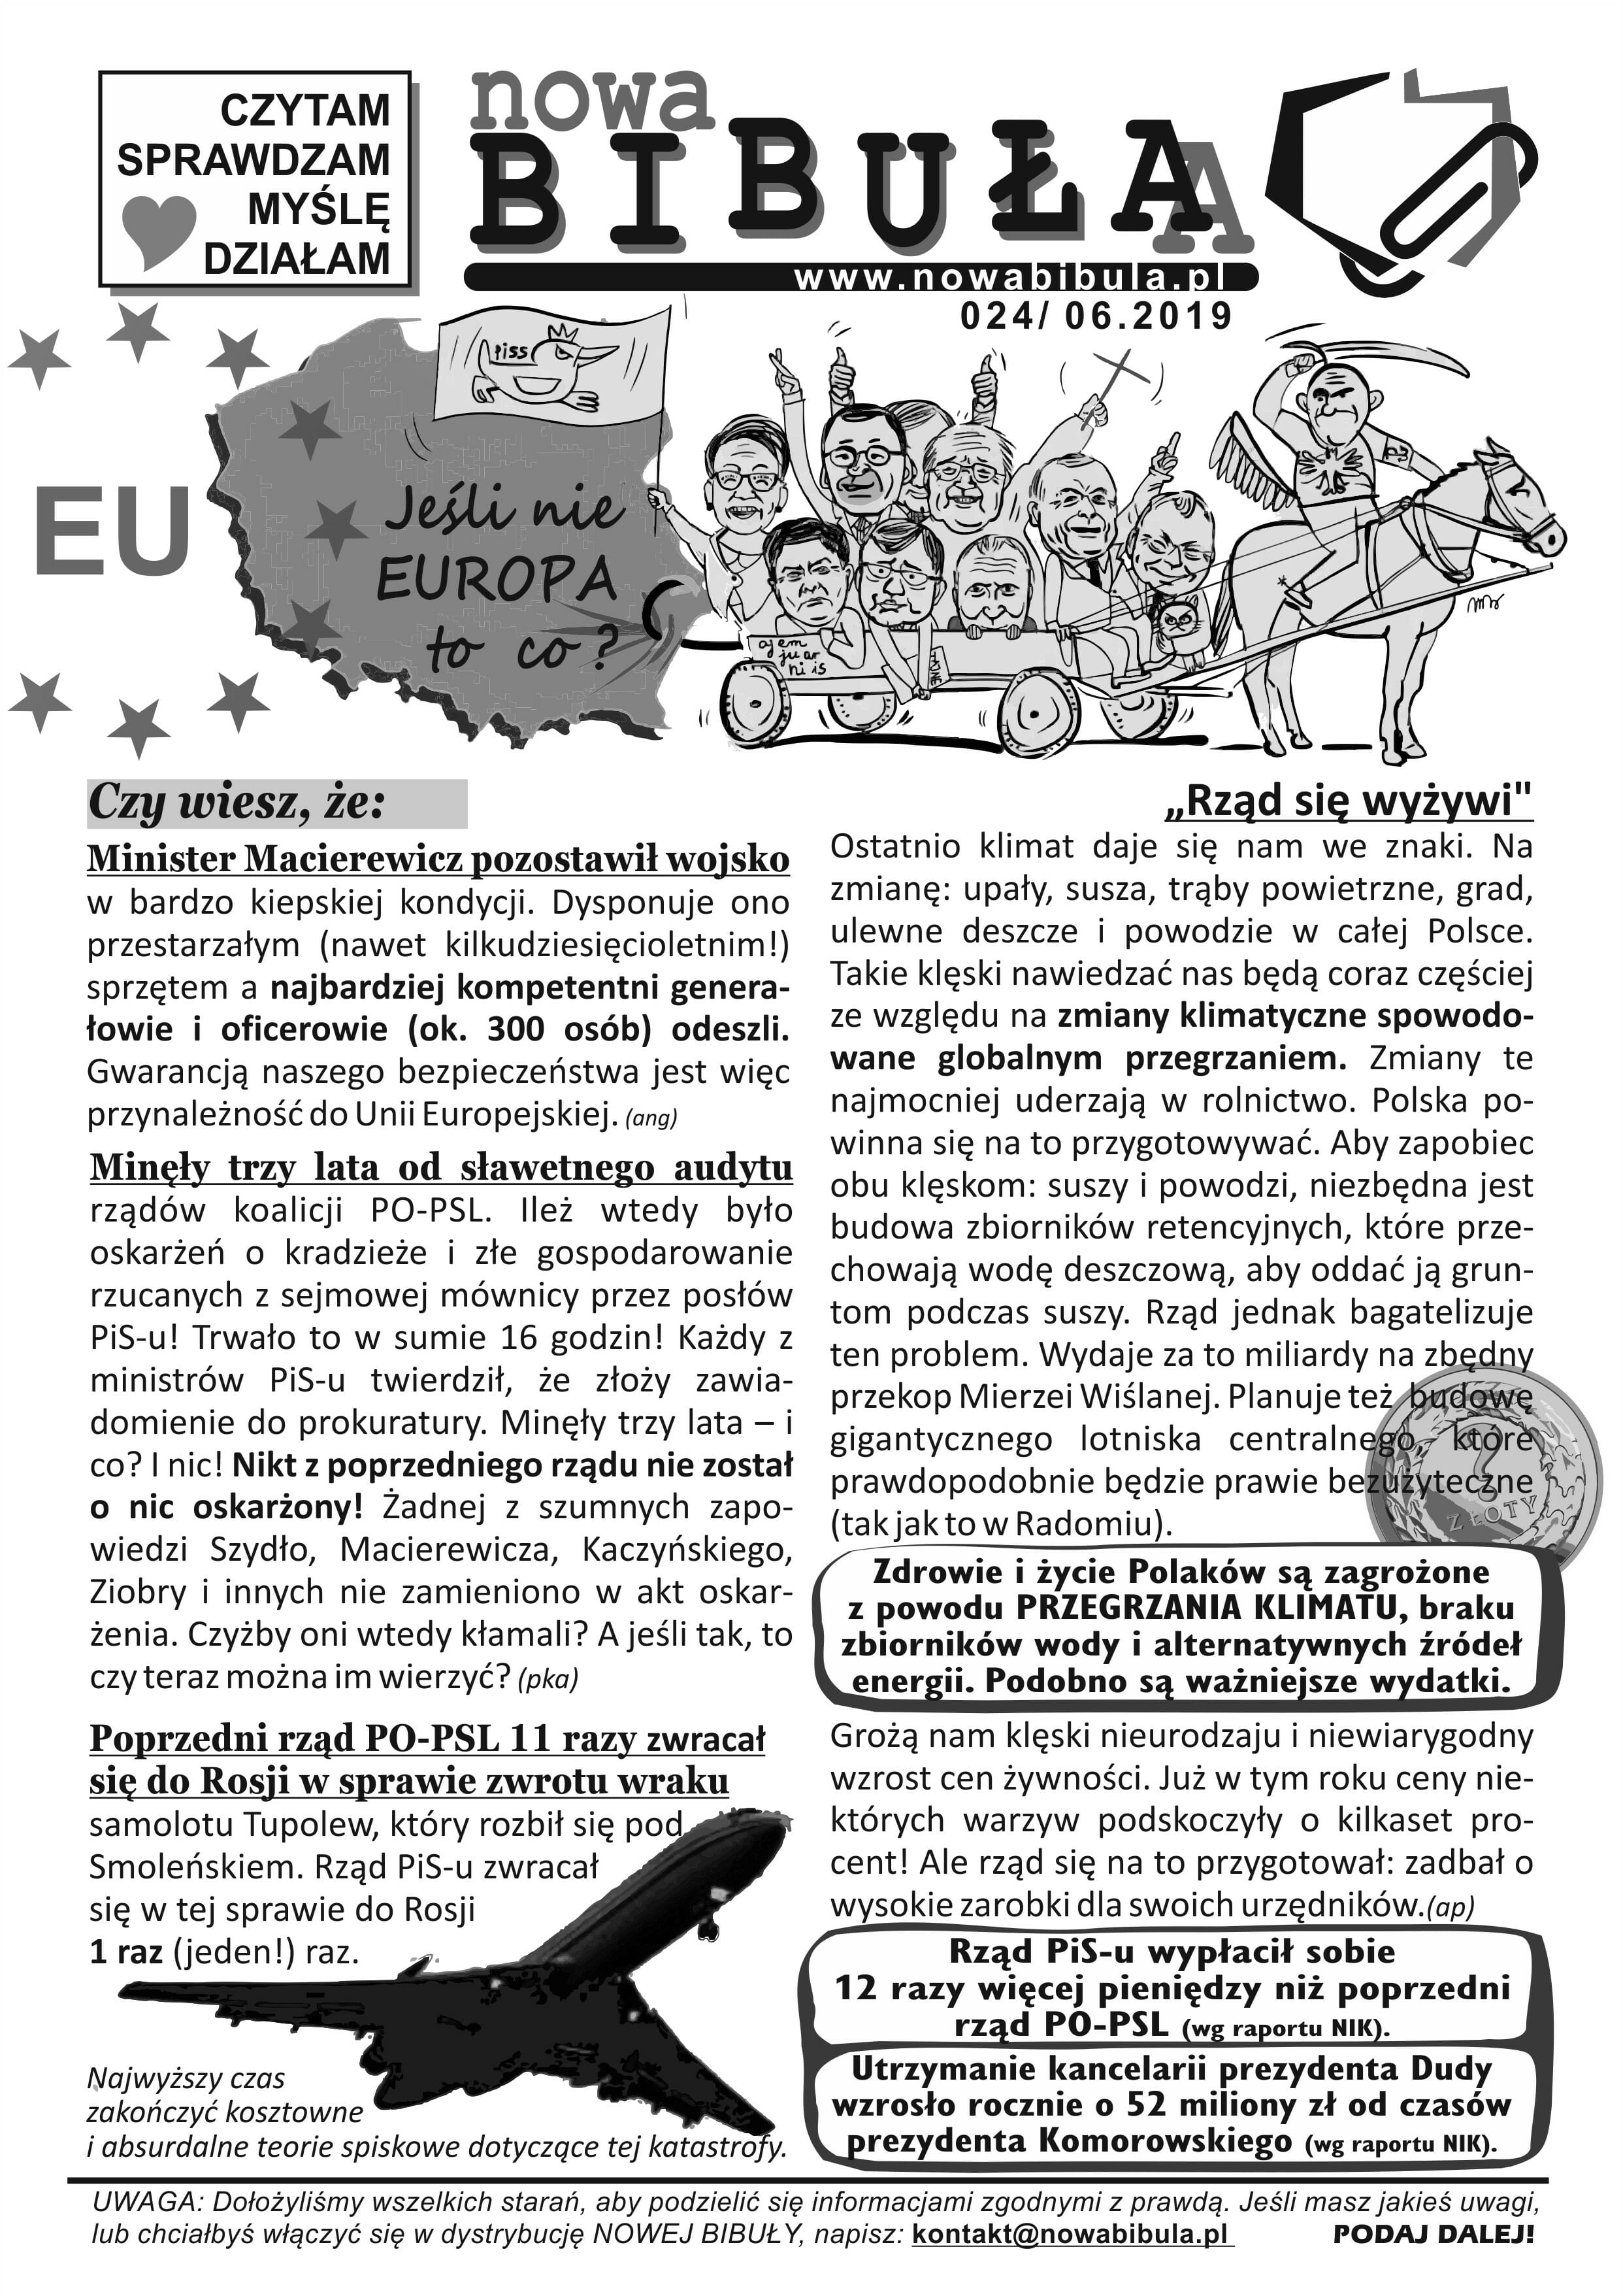 CZYTAM
SPRAWDZAM
MYŚLĘ
DZIAŁAM
nowa
BIBUŁA
www.nowabibula.pl
024/ 06.2019
piss
EU
Jeśli nie
EUROPA
to co?
ajem
ju ar
ni is
Czy wiesz, że:
Minister Macierewicz pozostawił wojsko
w bardzo kiepskiej kondycji. Dysponuje ono
przestarzałym (nawet kilkudziesięcioletnim!)
sprzętem a najbardziej kompetentni genera-
łowie i oficerowie (ok. 300 osób) odeszli.
Gwarancją naszego bezpieczeństwa jest więc
przynależność do Unii Europejskiej. (ang)
Minęły trzy lata od sławetnego audytu
rządów koalicji PO-PSL. Ileż wtedy było
oskarżeń o kradzieże i złe gospodarowanie
rzucanych z sejmowej mównicy przez posłów
PiS-u! Trwało to w sumie 16 godzin! Każdy z
ministrów PiS-u twierdził, że złoży zawia-
domienie do prokuratury. Minęły trzy lata – i
co? I nic! Nikt z poprzedniego rządu nie został
o nic oskarżony! Żadnej z szumnych zapo-
wiedzi Szydło, Macierewicza, Kaczyńskiego,
Ziobry i innych nie zamieniono w akt oskar-
żenia. Czyżby oni wtedy kłamali? A jeśli tak, to
czy teraz można im wierzyć? (pka)
Poprzedni rząd PO-PSL 11 razy zwracał
się do Rosji w sprawie zwrotu wraku
samolotu Tupolew, który rozbił się pod
Smoleńskiem. Rząd PiS-u zwracał
się w tej sprawie do Rosji
1 raz (jeden!) raz.
Najwyższy czas
zakończyć kosztowne
i absurdalne teorie spiskowe dotyczące tej katastrofy.
„Rząd się wyżywi"
Ostatnio klimat daje się nam we znaki. Na
zmianę: upały, susza, trąby powietrzne, grad,
ulewne deszcze i powodzie w całej Polsce.
Takie klęski nawiedzać nas będą coraz częściej
ze względu na zmiany klimatyczne spowodo-
wane globalnym przegrzaniem. Zmiany te
najmocniej uderzają w rolnictwo. Polska po-
winna się na to przygotowywać. Aby zapobiec
obu klęskom: suszy i powodzi, niezbędna jest
budowa zbiorników retencyjnych, które prze-
chowają wodę deszczową, aby oddać ją grun-
tom podczas suszy. Rząd jednak bagatelizuje
ten problem. Wydaje za to miliardy na zbędny
przekop Mierzei Wiślanej. Planuje też budowę
gigantycznego lotniska centralnego, które
prawdopodobnie będzie prawie bezużyteczne
(tak jak to w Radomiu).
ZŁOTY
Zdrowie i życie Polaków są zagrożone
z powodu PRZEGRZANIA KLIMATU, braku
zbiorników wody i alternatywnych źródeł
energii. Podobno są ważniejsze wydatki.
Grożą nam klęski nieurodzaju i niewiarygodny
wzrost cen żywności. Już w tym roku ceny nie-
których warzyw podskoczyły o kilkaset pro-
cent! Ale rząd się na to przygotował: zadbał o
wysokie zarobki dla swoich urzędników.(ap)
Rząd PiS-u wypłacił sobie
12 razy więcej pieniędzy niż poprzedni
rząd PO-PSL (wg raportu NIK).
Utrzymanie kancelarii prezydenta Dudy
wzrosło rocznie o 52 miliony zł od czasów
prezydenta Komorowskiego (wg raportu NIK).
UWAGA: Dołożyliśmy wszelkich starań, aby podzielić się informacjami zgodnymi z prawdą. Jeśli masz jakieś uwagi,
lub chciałbyś włączyć się w dystrybucję NOWEJ BIBUŁY, napisz: kontakt@nowabibula.pl PODAJ DALEJ!